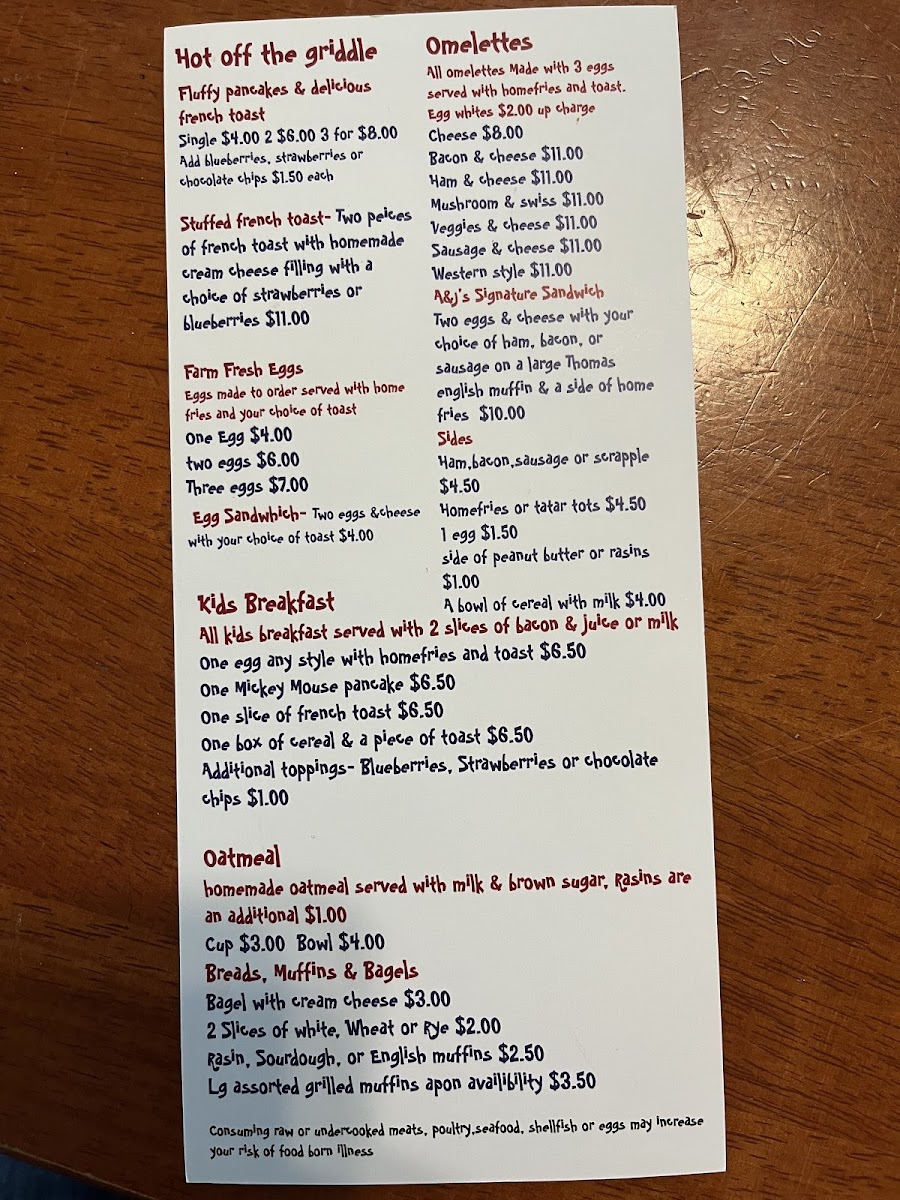 Hot off the griddle
Fluffy pancakes & delicious
french toast
Single $4.00 2 $6.00 3 for $8.00
Add blueberries, strawberries or
chocolate chips $1.50 each
Stuffed french toast- Two peices
of french toast with homemade
cream cheese filling with a
choice of strawberries or
blueberries $11.00
Farm Fresh Eggs
Eggs made to order served with home
fries and your choice of toast
One Egg $4.00
two eggs $6.00
Three eggs $7.00
Egg Sandwhich- Two eggs &cheese
with your choice of toast $4.00
Omelettes
All omelettes Made with 3 eggs
served with homefries and toast.
Egg whites $2.00 up charge
Cheese $8.00
Bacon & cheese $11.00
Ham & cheese $11.00
Mushroom & swiss $11.00
Veggies & cheese $11.00
Sausage & cheese $11.00
Western style $11.00
A&J's Signature Sandwich
Two eggs & cheese with your
choice of ham, bacon, or
sausage on a large Thomas
english muffin & a side of home
fries $10.00
Sides
Ham,bacon,sausage or scrapple
$4.50
Homefries or tatar tots $4.50
1 egg $1.50
side of peanut butter or rasins
$1.00
A bowl of cereal with milk $4.00
Kids Breakfast
All kids breakfast served with 2 slices of bacon & juice or milk
One egg any style with homefries and toast $6.50
One Mickey Mouse pancake $6.50
One slice of french toast $6.50
One box of cereal & a piece of toast $6.50
Additional toppings- Blueberries, Strawberries or chocolate
chips $1.00
Oatmeal
homemade oatmeal served with milk & brown sugar, Rasins are
an additional $1.00
Cup $3.00 Bowl $4.00
Breads, Muffins & Bagels
Bagel with cream cheese $3.00
2 Slices of white, Wheat or Rye $2.00
Rasin, Sourdough, or English muffins $2.50
Lg assorted grilled muffins apon availibility $3.50
Consuming raw or undercooked meats, poultry,seafood, shellfish or eggs may increase
your risk of food born illness